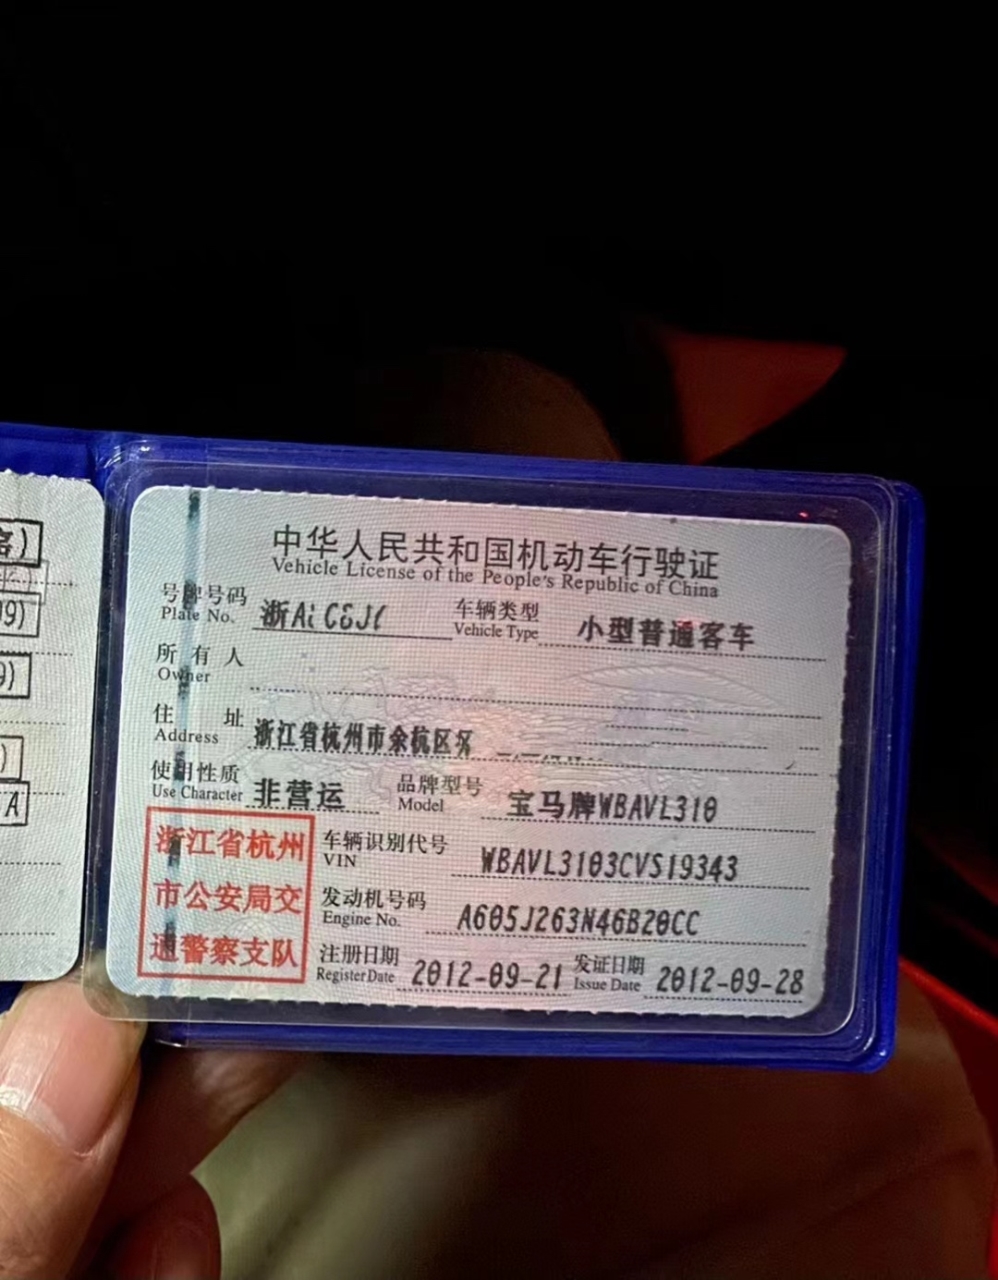 中华人民共和国机动车行驶证
Vehicle License of the People's Republic of China
号牌号码 Plate No. 车辆类型 Vehicle Type 小型普通客车
所有人 Owner
住址 Address 浙江省杭州市余杭区
使用性质 Use Character 非营运 品牌型号 Model 宝马牌WBAVL310
浙江省杭州
市公安局交
通警察支队
车辆识别代号 VIN WBAVL3103CVS19343
发动机号码 Engine No. A605J263N46B20CC
注册日期 Register Date 2012-09-21 发证日期 Issue Date 2012-09-28